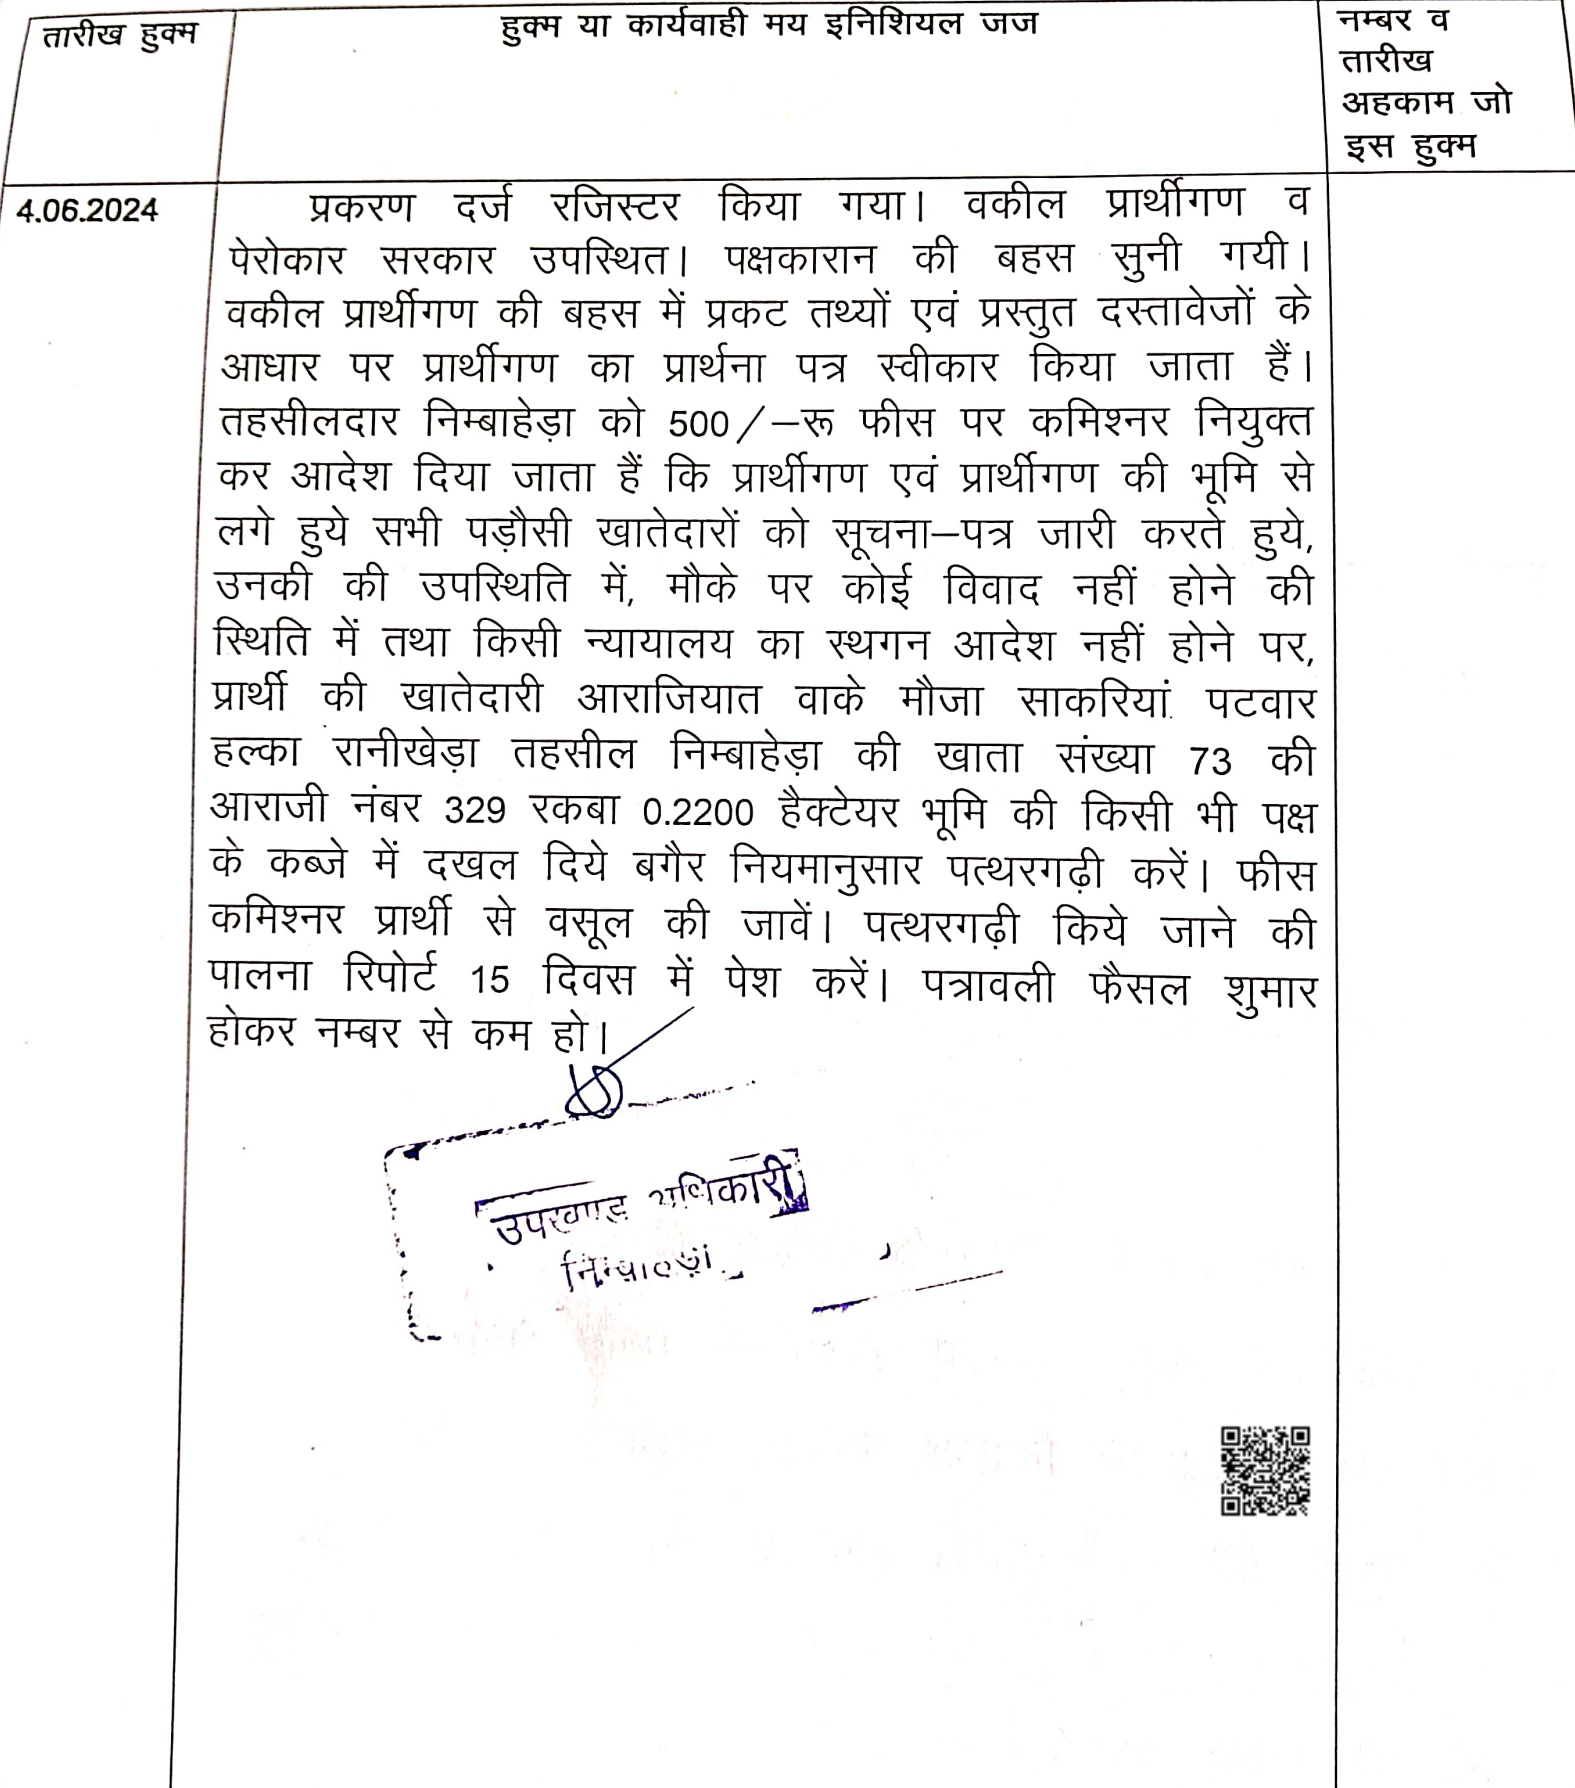 तारीख हुक्म
हुक्म या कार्यवाही मय इनिशियल जज
नम्बर व
तारीख
अहकाम जो
इस हुक्म
4.06.2024
प्रकरण दर्ज रजिस्टर किया गया। वकील प्रार्थीगण व
पेरोकार सरकार उपस्थित। पक्षकारान की बहस सुनी गयी।
वकील प्रार्थीगण की बहस में प्रकट तथ्यों एवं प्रस्तुत दस्तावेजों के
आधार पर प्रार्थीगण का प्रार्थना पत्र स्वीकार किया जाता हैं।
तहसीलदार निम्बाहेड़ा को 500/–रू फीस पर कमिश्नर नियुक्त
कर आदेश दिया जाता हैं कि प्रार्थीगण एवं प्रार्थीगण की भूमि से
लगे हुये सभी पड़ौसी खातेदारों को सूचना–पत्र जारी करते हुये,
उनकी की उपस्थिति में, मौके पर कोई विवाद नहीं होने की
स्थिति में तथा किसी न्यायालय का स्थगन आदेश नहीं होने पर,
प्रार्थी की खातेदारी आराजियात वाके मौजा साकरियां पटवार
हल्का रानीखेड़ा तहसील निम्बाहेड़ा की खाता संख्या 73 की
आराजी नंबर 329 रकबा 0.2200 हैक्टेयर भूमि की किसी भी पक्ष
के कब्जे में दखल दिये बगैर नियमानुसार पत्थरगढ़ी करें। फीस
कमिश्नर प्रार्थी से वसूल की जावें। पत्थरगढ़ी किये जाने की
पालना रिपोर्ट 15 दिवस में पेश करें। पत्रावली फैसल शुमार
होकर नम्बर से कम हो।
उपखण्ड अधिकारी